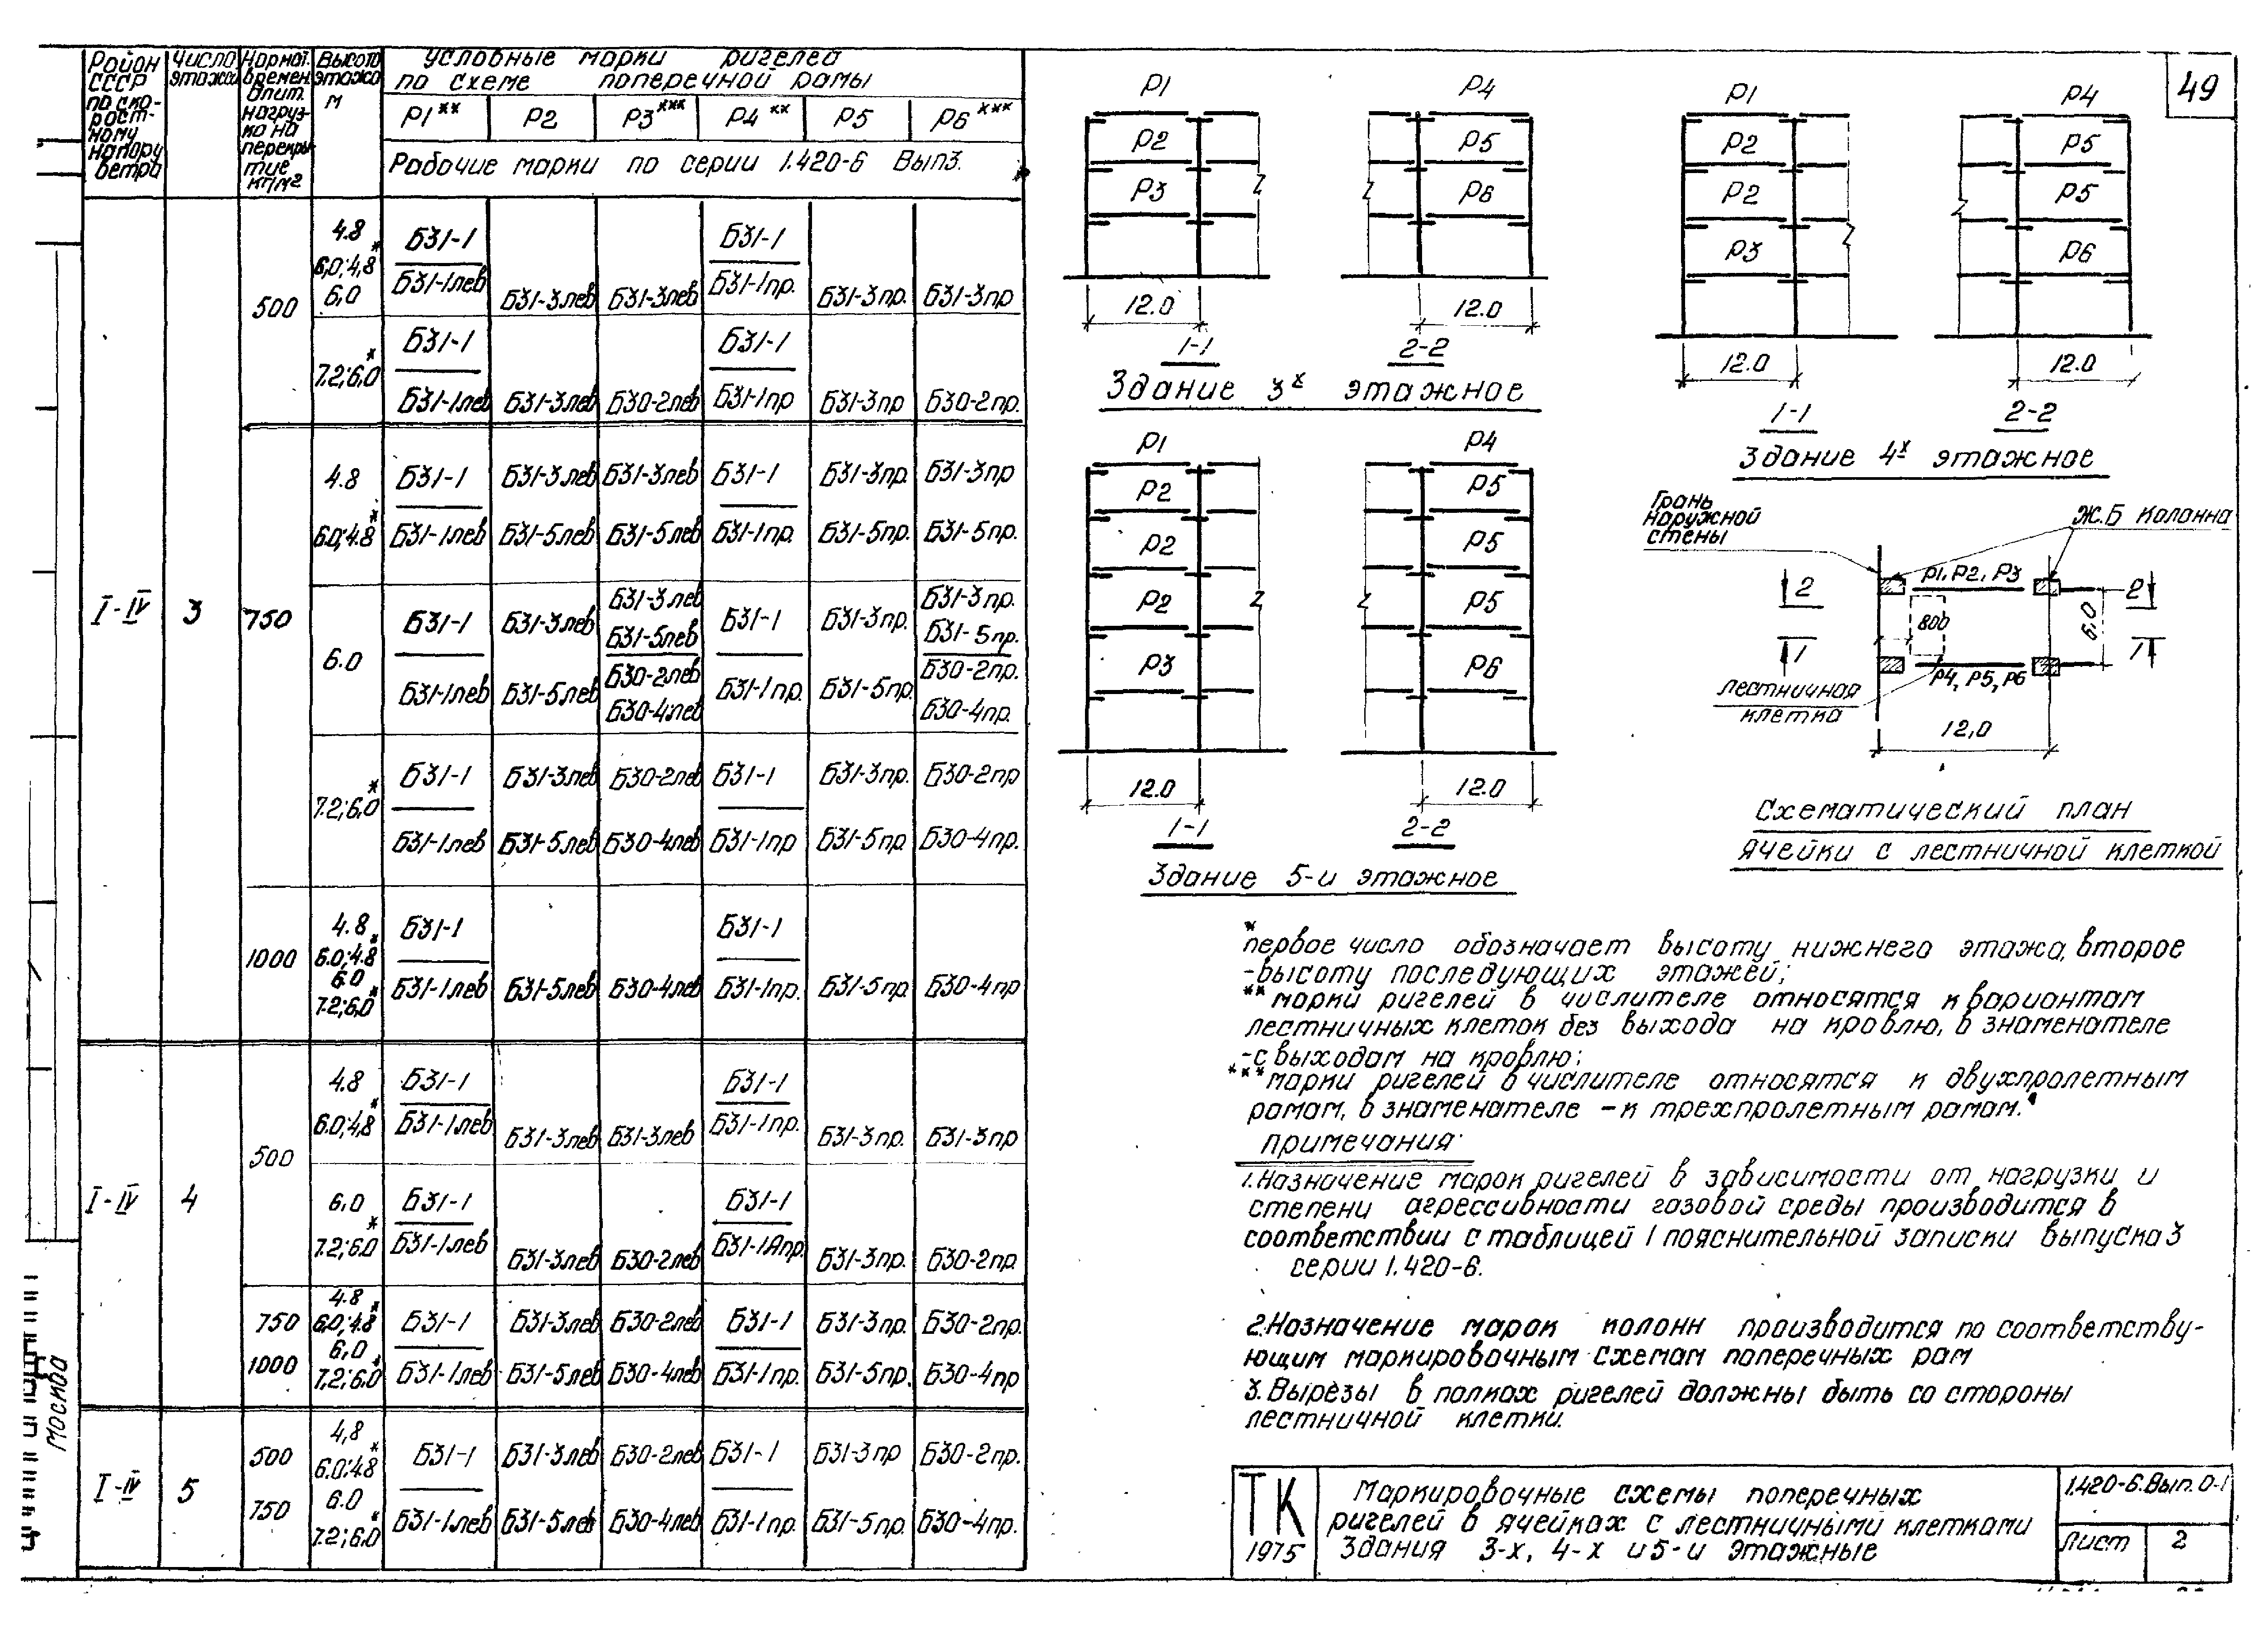 49
Район СССР по скоростному напору ветра
Число этажей
Нормат. времен. длит. нагрузка на перекрытие кг/м2
Высота этажа м
Условные марки ригелей
по схеме поперечной рамы
Р1** Р2 Р3*** Р4** Р5 Р6***
Рабочие марки по серии 1.420-6 Вып3.
I-IV 3
500
4.8 Б31-1 Б31-1
6,0;4,8*
6,0 Б31-1лев Б31-3лев Б31-3лев Б31-1пр. Б31-3пр. Б31-3пр
Б31-1 Б31-1
7.2;6,0*
Б31-1лев Б31-3лев Б30-2лев Б31-1пр Б31-3пр Б30-2пр.
750
4.8 Б31-1 Б31-3лев Б31-3лев Б31-1 Б31-3пр. Б31-3пр
6.0;4.8* Б31-1лев Б31-5лев Б31-5лев Б31-1пр. Б31-5пр. Б31-5пр.
6.0
Б31-3лев Б31-3пр.
Б31-1 Б31-3лев Б31-5лев Б31-1 Б31-3пр. Б31-5пр.
Б30-2лев Б30-2пр.
Б31-1лев Б31-5лев Б30-4лев Б31-1пр. Б31-5пр. Б30-4пр.
7.2;6.0*
Б31-1 Б31-3лев Б30-2лев Б31-1 Б31-3пр. Б30-2пр
Б31-1лев Б31-5лев Б30-4лев Б31-1пр Б31-5пр. Б30-4пр.
1000
4.8 Б31-1 Б31-1
6.0;4.8*
6.0
7.2;6,0* Б31-1лев Б31-5лев Б30-4лев Б31-1пр. Б31-5пр. Б30-4пр
I-IV 4
500
4.8 Б31-1 Б31-1
6.0;4,8* Б31-1лев Б31-3лев Б31-3лев Б31-1пр. Б31-3пр. Б31-3пр
6,0 Б31-1 Б31-1
7.2;6.0* Б31-1лев Б31-3лев Б30-2лев Б31-1Апр. Б31-3пр. Б30-2пр.
4.8
750 6,0;4.8* Б31-1 Б31-3лев Б30-2лев Б31-1 Б31-3пр. Б30-2пр.
6,0
1000 7,2;6,0* Б31-1лев Б31-5лев Б30-4лев Б31-1пр. Б31-5пр. Б30-4пр
I-IV 5
4,8
500 6.0;4.8* Б31-1 Б31-3лев Б30-2лев Б31-1 Б31-3пр Б30-2пр.
6.0
750 7.2;6,0* Б31-1лев Б31-5лев Б30-4лев Б31-1пр. Б31-5пр. Б30-4пр.
Москва
Р1 Р4
Р2 Р5
Р3 Р6
12.0 12.0
1-1 2-2
Здание 3х этажное
Р1 Р4
Р2 Р5
Р2 Р5
Р3 Р6
12.0 12.0
1-1 2-2
Здание 4х этажное
Р1 Р4
Р2 Р5
Р2 Р5
Р2 Р5
Р3 Р6
12.0 12.0
1-1 2-2
Здание 5-и этажное
Грань
наружной
стены
Ж.Б колонна
Р1, Р2, Р3
2 2
800 6,0
1 1
Р4, Р5, Р6
лестничная
клетка
12,0
Схематический план
ячейки с лестничной клеткой
*
первое число обозначает высоту нижнего этажа, второе
-высоту последующих этажей;
**марки ригелей в числителе относятся к вариантам
лестничных клеток без выхода на кровлю, в знаменателе
-с выходам на кровлю;
***марки ригелей в числителе относятся к двухпролетным
рамам, в знаменателе - к трехпролетным рамам.
Примечания:
1. Назначение марок ригелей в зависимости от нагрузки и
степени агрессивности газовой среды производится в
соответствии с таблицей 1 пояснительной записки выпуска 3
серии 1.420-6.
2. Назначение марок колонн производится по соответству-
ющим маркировочным схемам поперечных рам
3. Вырезы в полках ригелей должны быть со стороны
лестничной клетки.
ТК
1975
Маркировочные схемы поперечных
ригелей в ячейках с лестничными клетками
Здания 3-х, 4-х и 5-и этажные
1.420-6.Вып. 0-1
Лист 2